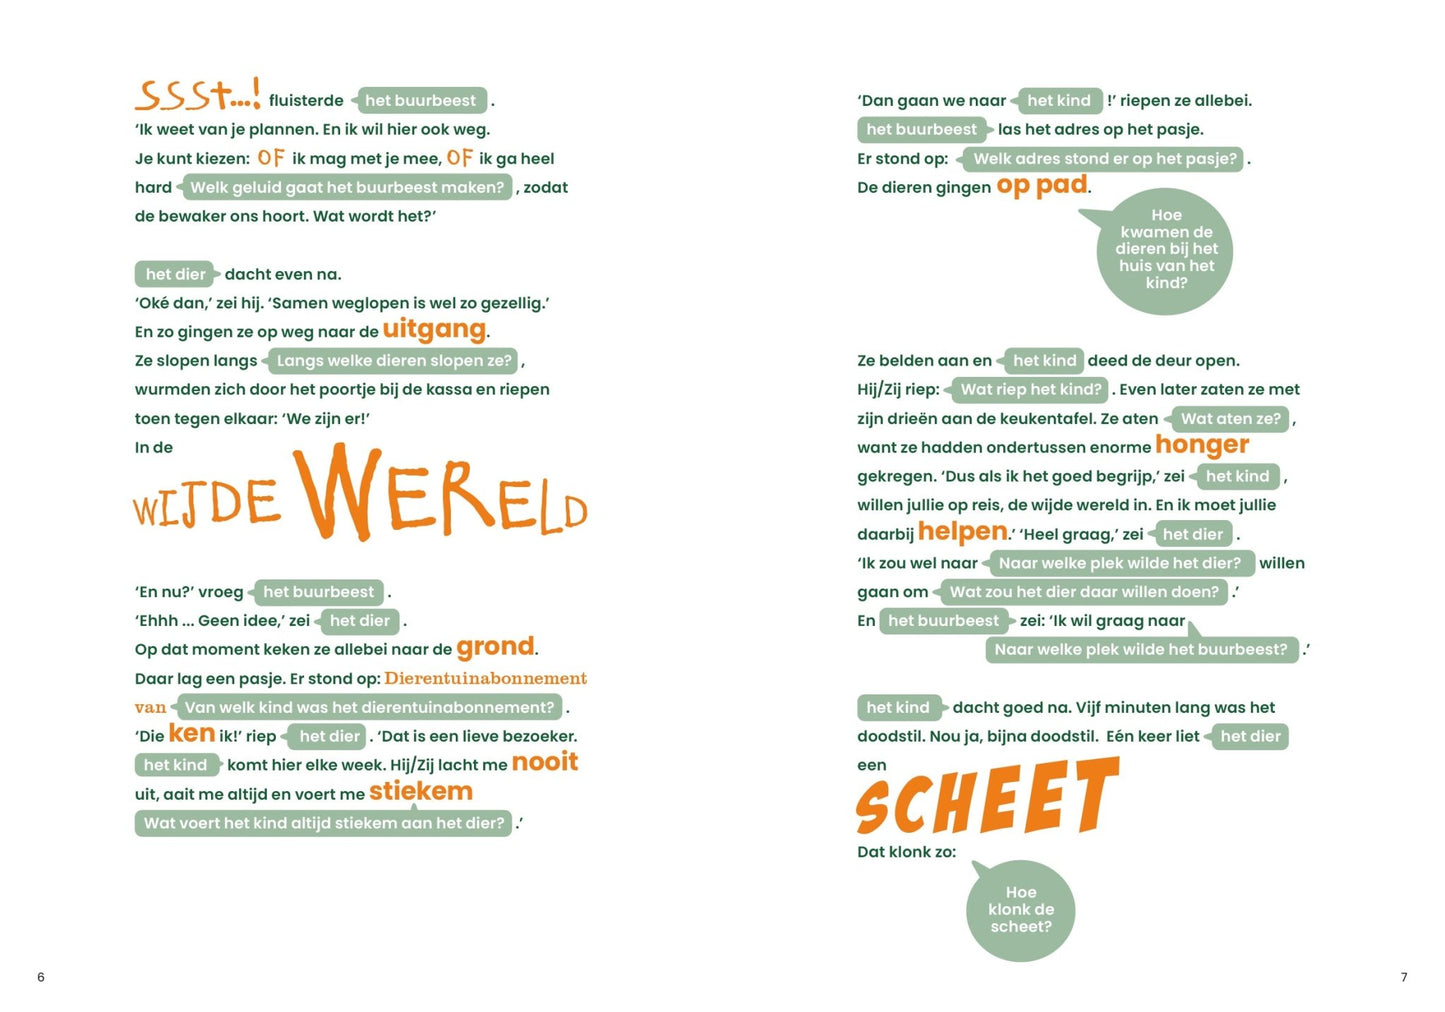 SSSt...! fluisterde het buurbeest .
‘Ik weet van je plannen. En ik wil hier ook weg.
Je kunt kiezen: OF ik mag met je mee, OF ik ga heel
hard Welk geluid gaat het buurbeest maken? , zodat
de bewaker ons hoort. Wat wordt het?’
het dier dacht even na.
‘Oké dan,’ zei hij. ‘Samen weglopen is wel zo gezellig.’
En zo gingen ze op weg naar de uitgang.
Ze slopen langs Langs welke dieren slopen ze? ,
wurmden zich door het poortje bij de kassa en riepen
toen tegen elkaar: ‘We zijn er!’
In de
WIJDE WERELD
‘En nu?’ vroeg het buurbeest .
‘Ehhh ... Geen idee,’ zei het dier .
Op dat moment keken ze allebei naar de grond.
Daar lag een pasje. Er stond op: Dierentuinabonnement
van Van welk kind was het dierentuinabonnement? .
‘Die ken ik!’ riep het dier . ‘Dat is een lieve bezoeker.
het kind komt hier elke week. Hij/Zij lacht me nooit
uit, aait me altijd en voert me stiekem
Wat voert het kind altijd stiekem aan het dier? .’
6
‘Dan gaan we naar het kind !’ riepen ze allebei.
het buurbeest las het adres op het pasje.
Er stond op: Welk adres stond er op het pasje? .
De dieren gingen op pad.
Hoe
kwamen de
dieren bij het
huis van het
kind?
Ze belden aan en het kind deed de deur open.
Hij/Zij riep: Wat riep het kind? . Even later zaten ze met
zijn drieën aan de keukentafel. Ze aten Wat aten ze? ,
want ze hadden ondertussen enorme honger
gekregen. ‘Dus als ik het goed begrijp,’ zei het kind ,
willen jullie op reis, de wijde wereld in. En ik moet jullie
daarbij helpen.’ ‘Heel graag,’ zei het dier .
‘Ik zou wel naar Naar welke plek wilde het dier? willen
gaan om Wat zou het dier daar willen doen? .’
En het buurbeest zei: ‘Ik wil graag naar
Naar welke plek wilde het buurbeest? .’
het kind dacht goed na. Vijf minuten lang was het
doodstil. Nou ja, bijna doodstil. Eén keer liet het dier
een
SCHEET
Dat klonk zo:
Hoe
klonk de
scheet?
7